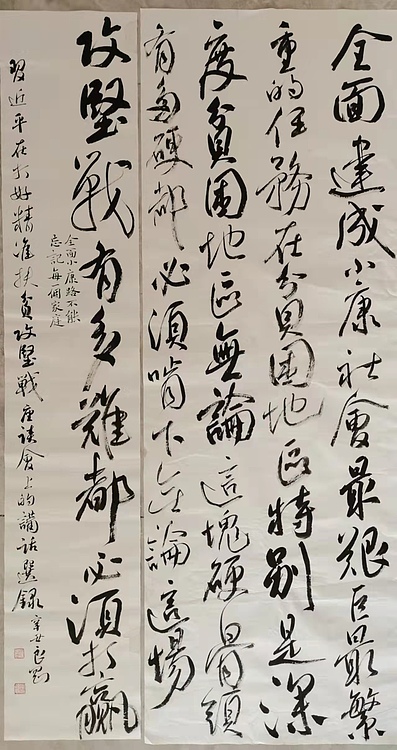 全面建成小康社會最艱巨最繁
重的任務在貧困地區特別是深
度貧困地區無論這塊硬骨頭
有多硬都必須啃下無論這場
攻堅戰有多難都必須打贏
全面小康路不能
忘記每一個家庭
習近平在打好精准扶貧攻堅戰座談會上的講話選錄 辛丑